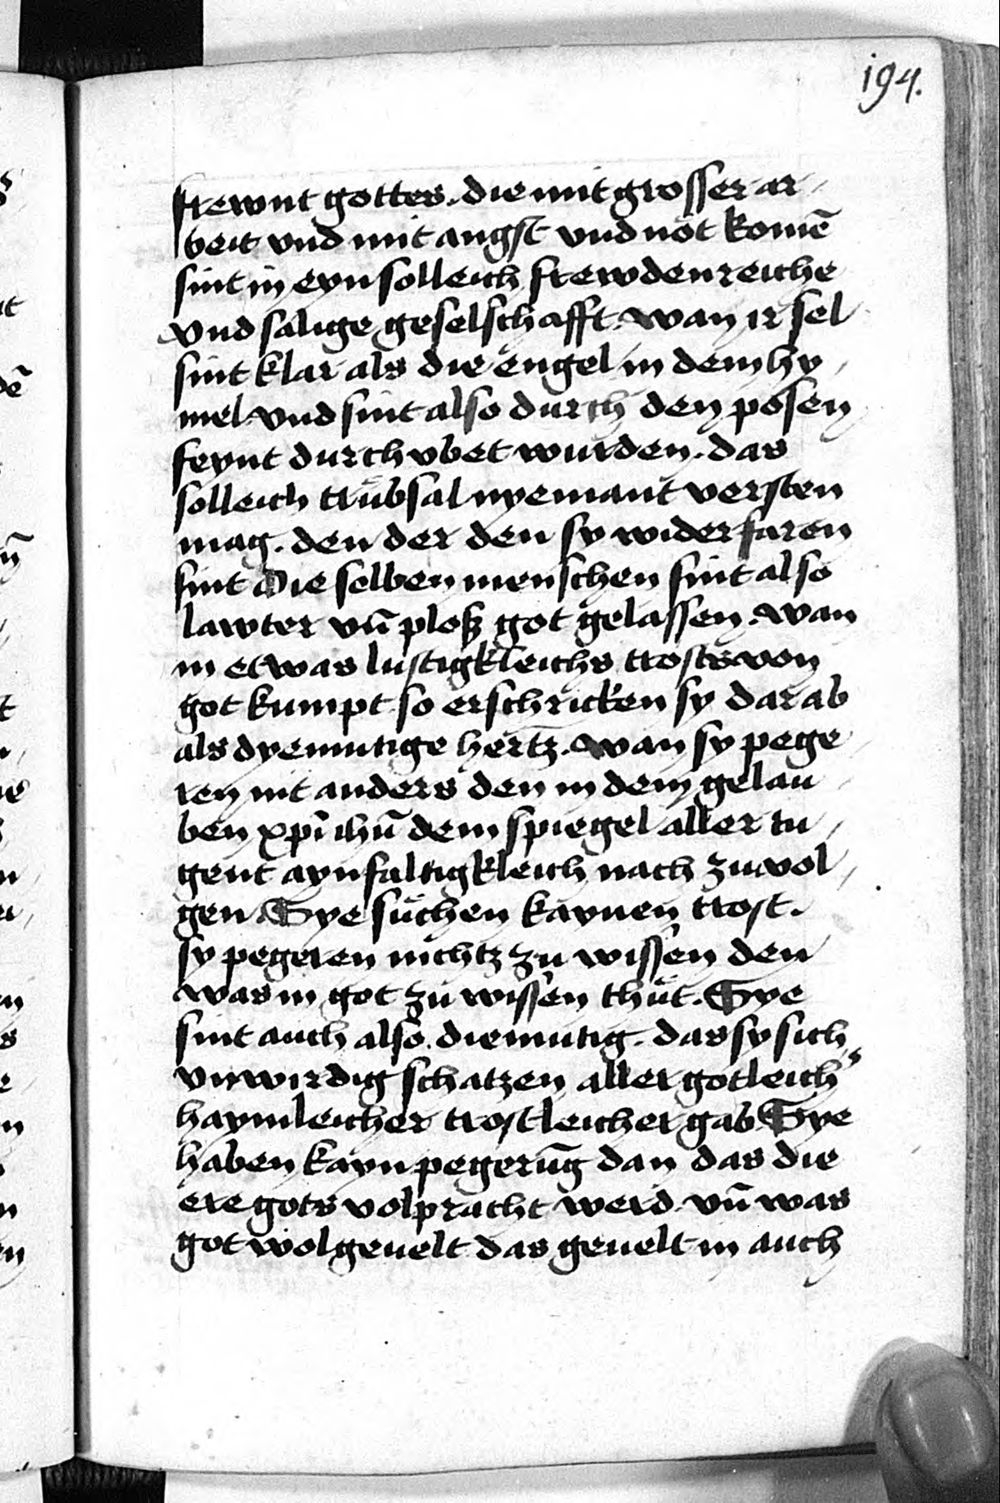 194.
frewnt gottes. die mit grosser ar-
beit vnd mit angst vnd not komē
sint in eyn solleich frewdenreiche
vnd salige geselschafft. wan ir sel
sint klar als die engel in dem hy-
mel vnd sint also durch den posen
feynt durch vbet wurden. das
solleich trübsal nyemant versten
mag. den der den sy widerfaren
sint Die selben menschen sint also
lawter vn̄ ploß got gelassen. wan
in etwas lustigkleichs trosts von
got kumpt so erschricken sy dar ab
als dyemutige hertz. wan sy pege-
ren nit anders den in dem gelau-
ben xp̄i ih̄u dem spiegel aller tu-
gent aynfaltigkleich nach zuuol-
gen. Sye süchen kaynen trost.
sy pegeren nichtz zu wissen den
was in got zü wissen thüt. Sye
sint auch also diemutig. das sy sich
vnwirdig schatzen aller gotleichs
haymleicher trostleicher gab. Sye
haben kayn pegerūg dan das die
ere gots volpracht werd. vn̄ was
got wolgeuelt das geuelt in auch